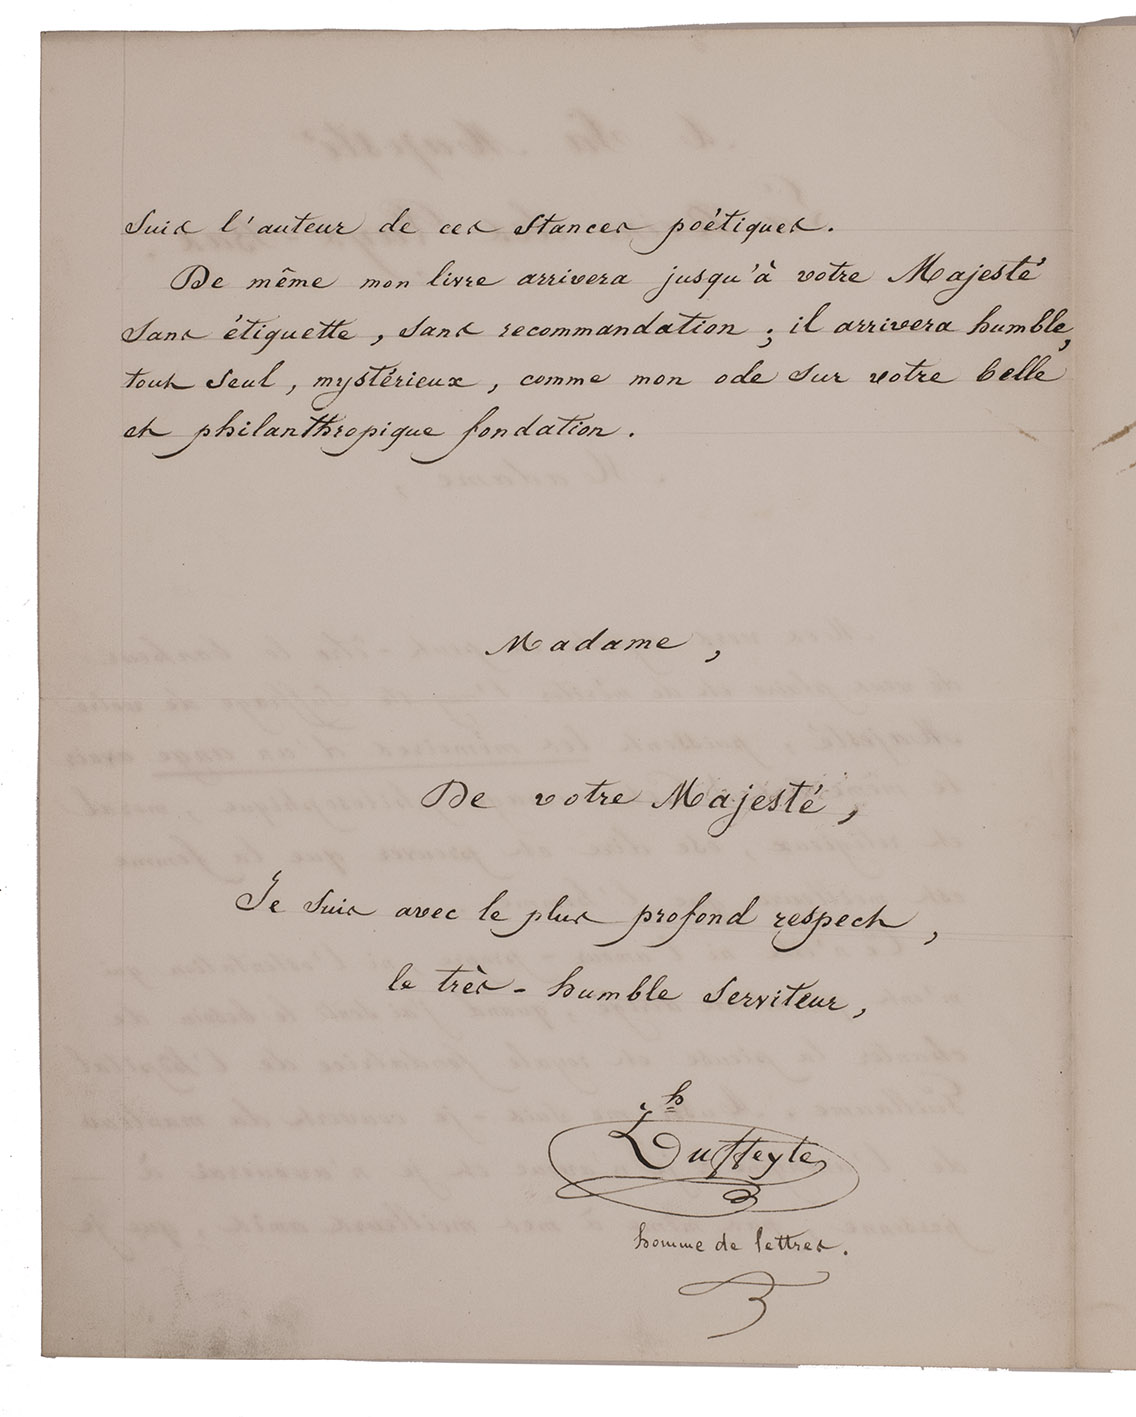 suis l'auteur de ces stances poétiques.
De même mon livre arrivera jusqu'à votre Majesté
sans étiquette, sans recommandation; il arrivera humble,
tout seul, mystérieux, comme mon ode sur votre belle
et philanthropique fondation.
Madame,
De votre Majesté,
Je suis avec le plus profond respect,
le très-humble serviteur,
homme de lettres.